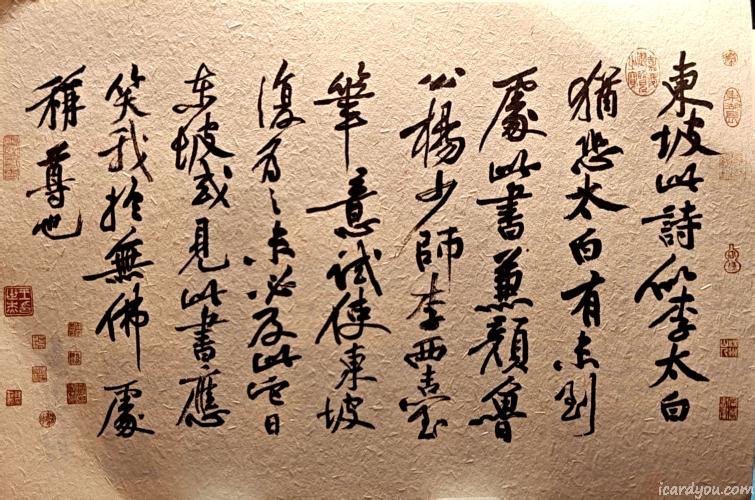 東坡此詩似李太白
猶恐太白有未到
處此書兼顏魯
公楊少師李西臺
筆意試使東坡
復為之未必及此它日
东坡或見此書應
笑我於無佛處
稱尊也
icardyou.com